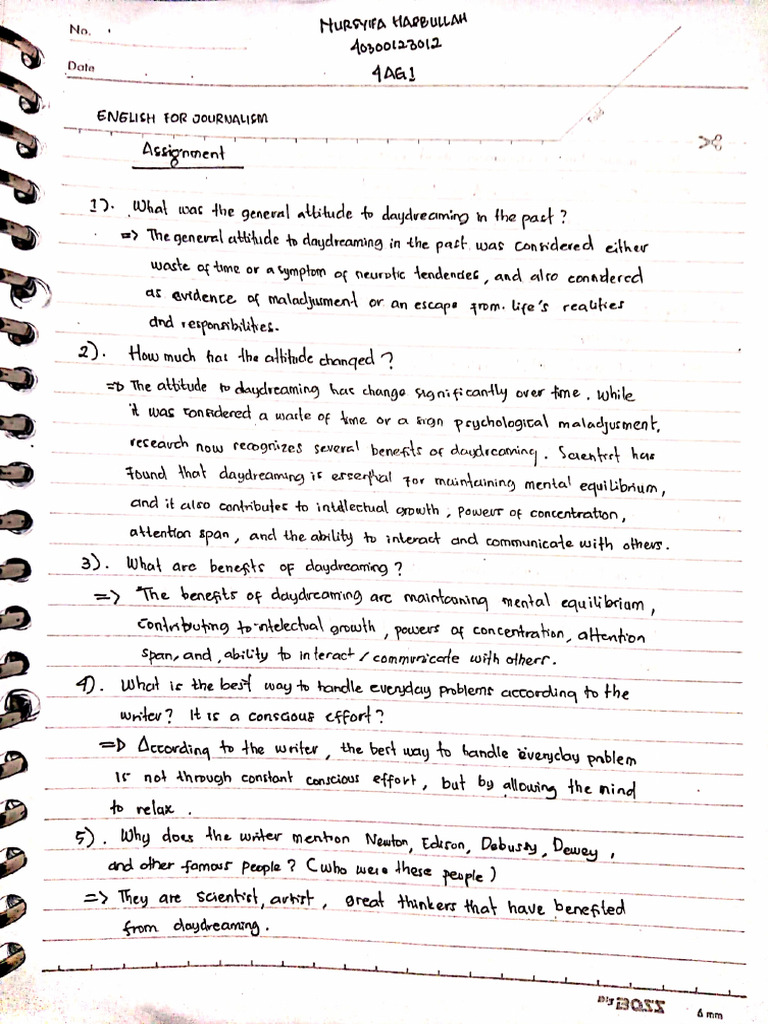 No.
NURSYIFA HAPBULLAH
40300123012
Date
4AG1
ENGLISH FOR JOURNALISM
Assignment
1). What was the general attitude to daydreaming in the past?
=> The general attitude to daydreaming in the past was considered either
waste of time or a symptom of neurotic tendencies, and also considered
as evidence of maladjusment or an escape from life's realities
and responsibilities.
2). How much has the attitude changed?
=> The attitude to daydreaming has change significantly over time. While
it was considered a waste of time or a sign psychological maladjusment,
research now recognizes several benefits of daydreaming. Scientist has
found that daydreaming is essential for maintaining mental equilibrium,
and it also contributes to intellectual growth, powers of concentration,
attention span, and the ability to interact and communicate with others.
3). What are benefits of daydreaming?
=> The benefits of daydreaming are maintaning mental equilibrium,
contributing to intelectual growth, powers of concentration, attention
span, and, ability to interact / communicate with others.
4). What is the best way to handle everyday problems according to the
writer? It is a conscious effort?
=> According to the writer, the best way to handle everyday problem
is not through constant conscious effort, but by allowing the mind
to relax.
5). Why does the writer mention Newton, Edison, Debussy, Dewey,
and other famous people? (who were these people)
=> They are scientist, artist, great thinkers that have benefited
from daydreaming.
BOSS
6 mm